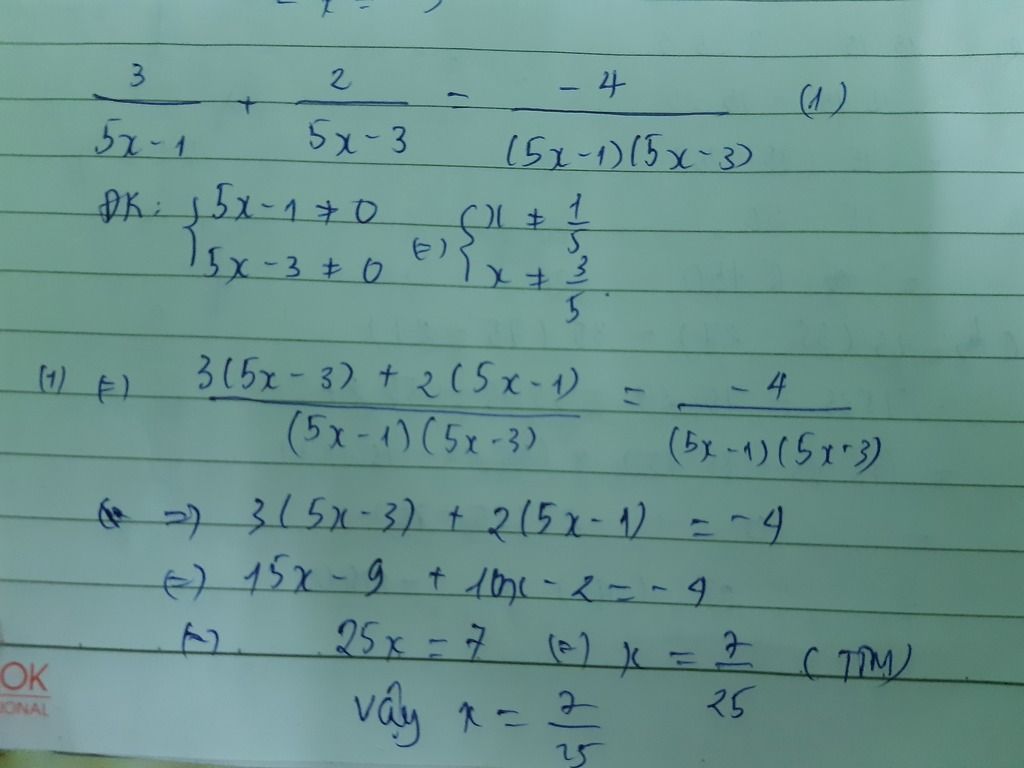 3/(5x-1) + 2/(5x-3) = -4/((5x-1)(5x-3)) (1)
ĐK: { 5x-1 ≠ 0 (=) { x ≠ 1/5
5x-3 ≠ 0 x ≠ 3/5.
(1) (=) (3(5x-3) + 2(5x-1))/((5x-1)(5x-3)) = -4/((5x-1)(5x-3))
=> 3(5x-3) + 2(5x-1) = -4
(=) 15x - 9 + 10x - 2 = -4
(=) 25x = 7 (=) x = 7/25 (TM)
Vậy x = 7/25
OK
IONAL